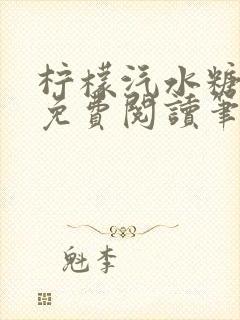 柠檬汽水糖
免費閱讀筆
魁李